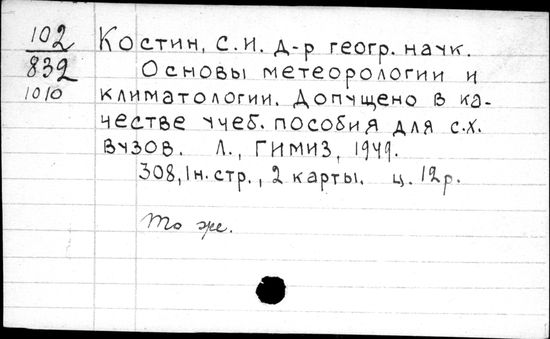 102
832
1010
Костин, С.И. д-р геогр. наук.
Основы метеорологии и
климатологии. Допущено в ка-
честве учеб. пособия для с.х.
вузов. Л., ГИМИЗ, 1949.
308, 1н. стр., 2 карты. ц. 12р.
То же.